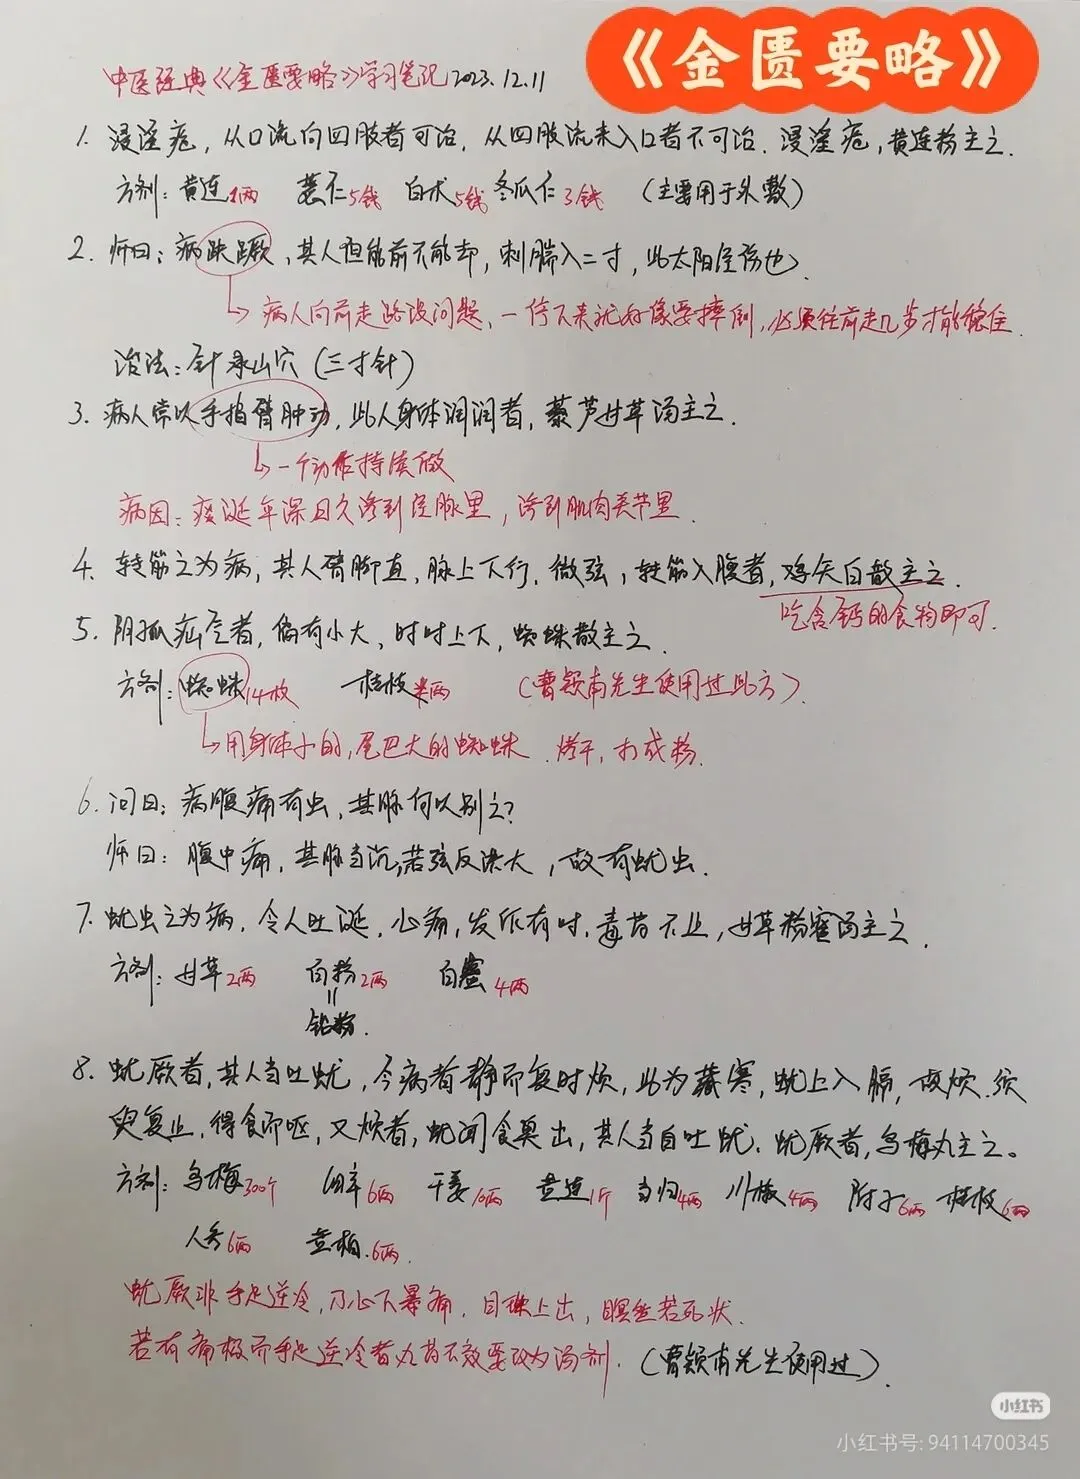 《金匮要略》
中医经典《金匮要略》学习笔记2023.12.11
1. 浸淫疮，从口流向四肢者可治，从四肢流来入口者不可治．浸淫疮，黄连粉主之．
方剂：黄连1两 薏仁5钱 白术5钱 冬瓜仁3钱 （主要用于外敷）
2. 师曰：病趺蹶，其人但能前不能却，刺腨入二寸，此太阳经伤也．
病人向前走路没问题，一停下来就好像要摔倒，必须往前走几步才能稳住．
治法：针承山穴（三寸针）
3. 病人常以手指臂肿动，此人身体润润者，藜芦甘草汤主之．
一个动作持续做
病因：痰涎年深日久渗到经脉里，渗到肌肉关节里．
4. 转筋之为病，其人臂脚直，脉上下行．微弦，转筋入腹者，鸡矢白散主之．
吃含钙的食物即可．
5. 阴狐疝气者，偏有小大，时时上下，蜘蛛散主之．
方剂：蜘蛛14枚 桂枝半两 （曹颖甫先生使用过此方）
用身体小的，尾巴大的蜘蛛．烤干，打成粉．
6. 问曰：病腹痛有虫，其脉何以别之？
师曰：腹中痛，其脉当沉，若弦反洪大，故有蚘虫．
7. 蚘虫之为病，令人吐涎，心痛，发作有时，毒药不止，甘草粉蜜汤主之．
方剂：甘草2两 白粉2两 白蜜4两
=
铅粉．
8. 蚘厥者，其人当吐蚘，今病者静而复时烦，此为藏寒，蚘上入膈，故烦．须
臾复止，得食而呕，又烦者，蚘闻食臭出，其人当自吐蚘．蚘厥者，乌梅丸主之。
方剂：乌梅300个 细辛6两 干姜10两 黄连1斤 当归4两 川椒4两 附子6两 桂枝6两
人参6两 黄柏．6两．
蚘厥非手足逆冷，乃心下暴痛，目珠上出，瞑然若死状．
若有痛极而手足逆冷者丸药不效要改为汤剂．（曹颖甫先生使用过）．
小红书
小红书号: 94114700345